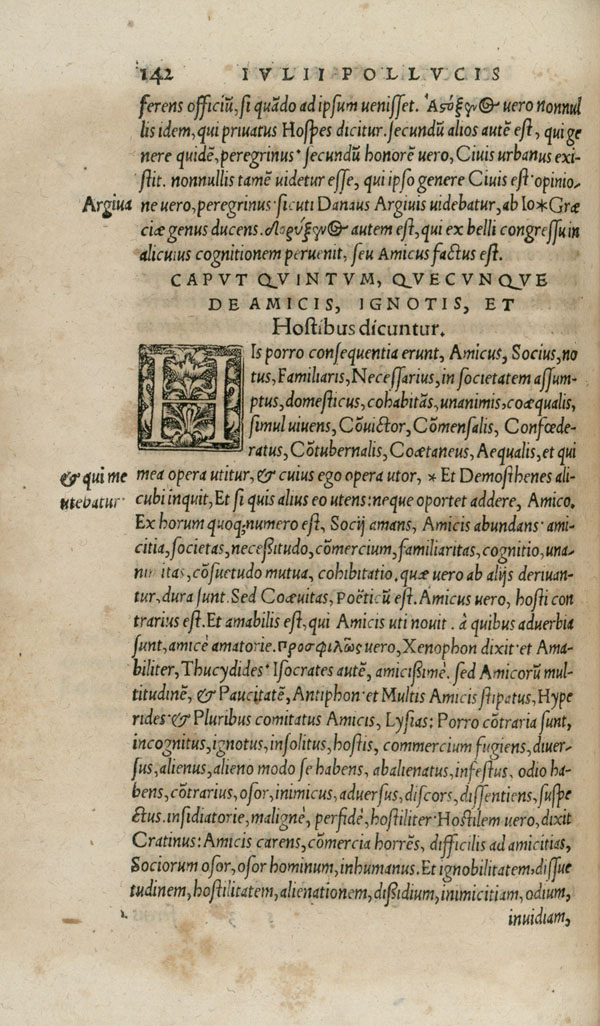 142 IVLII POLLVCIS
ferens officiū, si quādo ad ipsum uenisset. Ἀςόξεν⊕ uero nonnul
lis idem, qui priuatus Hospes dicitur. secundū alios autē est, qui ge
nere quidē, peregrinus· secundū honorē uero, Ciuis urbanus exi-
stit. nonnullis tamē uidetur esse, qui ipso genere Ciuis est· opinio-
Argiua
ne uero, peregrinus· sicuti Danaus Argiuis uidebatur, ab Io*Græ
ciæ genus ducens. autem est, qui ex belli congressu in
alicuius cognitionem peruenit, seu Amicus factus est.
CAPVT QVINTVM, QVECVNQVE
DE AMICIS, IGNOTIS, ET
Hostibus dicuntur.
HIs porro consequentia erunt, Amicus, Socius, no
tus, Familiaris, Necessarius, in societatem assum-
ptus, domesticus, cohabitās, unanimis, coæqualis,
simul uiuens, Cōuictor, Cōmensalis, Confœde-
ratus, Cōtubernalis, Coætaneus, Aequalis, et qui
& qui me
utebatur·
mea opera utitur, & cuius ego opera utor, * Et Demosthenes ali-
cubi inquit, Et si quis alius eo utens: neque oportet addere, Amico.
Ex horum quoq; numero est, Socij amans, Amicis abundans· ami-
citia, societas, neceßitudo, cōmercium, familiaritas, cognitio, una-
nimitas, cōsuetudo mutua, cohibitatio. quæ uero ab alijs deriuan-
tur, dura sunt. Sed Coæuitas, Poëticū est. Amicus uero, hosti con
trarius est. Et amabilis est, qui Amicis uti nouit . à quibus aduerbia
sunt, amicè amatorie. Προσφιλῶς uero, Xenophon dixit· et Ama-
biliter, Thucydides· Isocrates autē, amicißimè. sed Amicorū mul-
titudinē, & Paucitatē, Antiphon· et Multis Amicis stipatus, Hype
rides· & Pluribus comitatus Amicis, Lysias: Porro cōtraria sunt,
incognitus, ignotus, insolitus, hostis, commercium fugiens, diuer-
sus, alienus, alieno modo se habens, abalienatus, infestus, odio ha-
bens, cōtrarius, osor, inimicus, aduersus, discors, dissentiens, suspe
ctus. insidiatorie, malignè, perfidè, hostiliter· Hostilem uero, dixit
Cratinus: Amicis carens, cōmercia horrēs, difficilis ad amicitias,
Sociorum osor, osor hominum, inhumanus. Et ignobilitatem, dissue
tudinem, hostilitatem, alienationem, dißidium, inimicitiam, odium,
inuidiam,